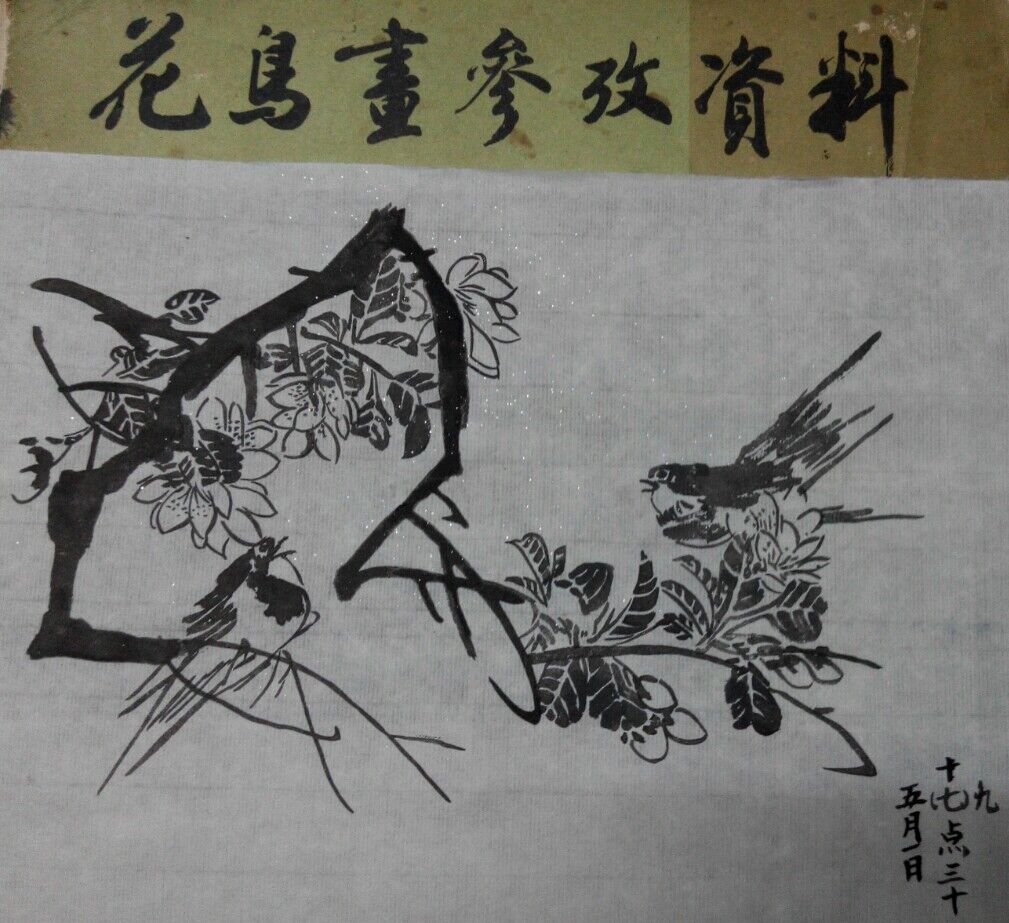 花鳥畫參攷資料
九
十(七)点三十
五月一日